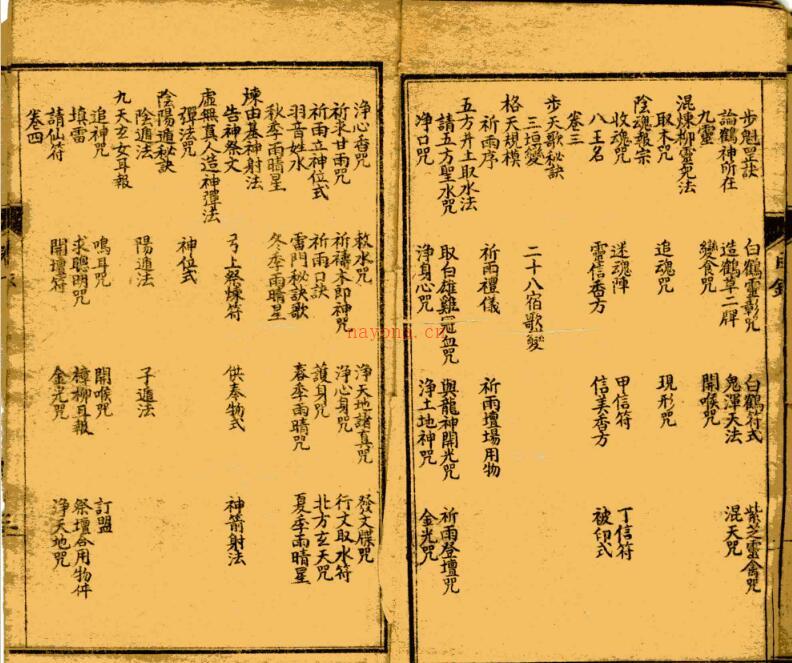 目錄
步魁罡訣 白鶴靈彰咒 白鶴符式 紫芝靈禽咒
論鶴神所在 造鶴草二牌 鬼渾天法 混天咒
九靈 變食咒 開喉咒
混煉柳靈兒法
取木咒 追魂咒 現形咒
陰魂報宗
收魂咒 迷魂陣 甲信符 丁信符
八王名 靈信香方 信美香方 被印式
卷三
步天歌秘訣
三垣變 二十八宿歌變
格天規模
祈雨序 祈雨禮儀 祈雨壇場用物
五方井土取水法
請五方聖水咒 取白雄雞冠血咒 與龍神開光咒 祈雨登壇咒
凈口咒 淨身心咒 淨土地神咒 金光咒
淨心香咒 敕水咒 淨天地諸真咒 發文牒咒
祈求甘雨咒 祈禱木郎神咒 淨心身咒 行文取水符
祈雨立神位式 祈雨口訣 護身咒 北方玄天咒
羽音姓水 雷門秘訣歌 春季雨晴咒 夏季雨晴星
秋季雨晴星 冬季雨晴星
煉由基神射法
告神祭文 弓上祭煉符 供奉物式 神箭射法
虛無真人造神彈法
彈法咒 神位式
陰陽遁秘訣
陰遁法 陽遁法 子遁法
九天玄女耳報
追神咒 鳴耳咒 開喉咒 訂盟
填雷 求聰明咒 樟柳耳報 祭壇合用物件
請仙符 開壇符 金光咒 淨天地咒
卷四
nayona.cn